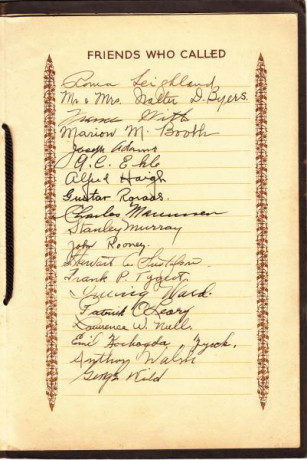 FRIENDS WHO CALLED
Roma Leighland
Mr. & Mrs. Walter D. Byers
Witt
Marion M. Booth
Joseph Adams
A.C. Ehle
Alfred Haigh
Gustav
Charles
Stanley Murray
John Rooney.
Stewart C.
Frank P.
Ward.
Patrick O'Leary
Lawrence W. Nall.
Emil
Anthony Walsh
George Wild